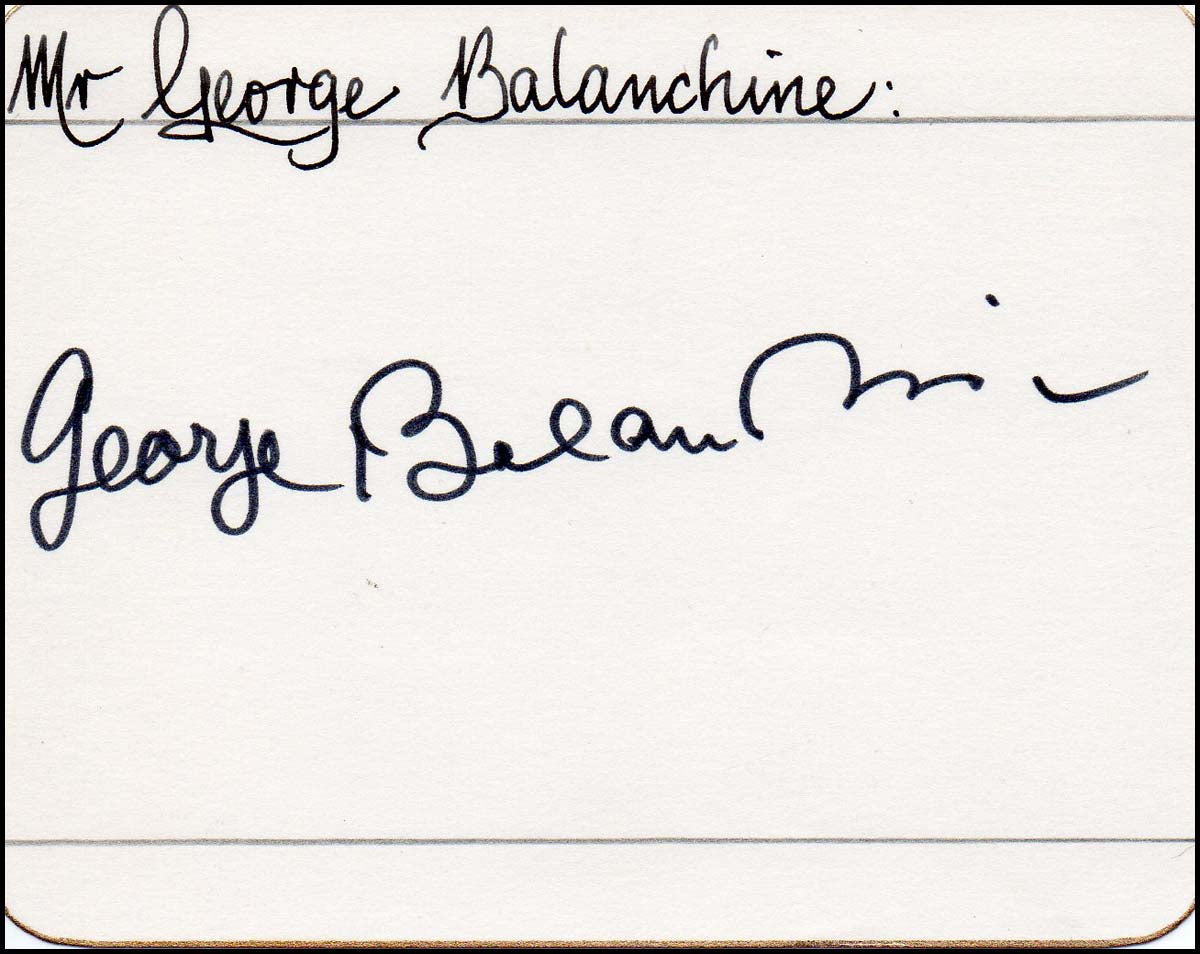 Mr George Balanchine:
George Balanchine